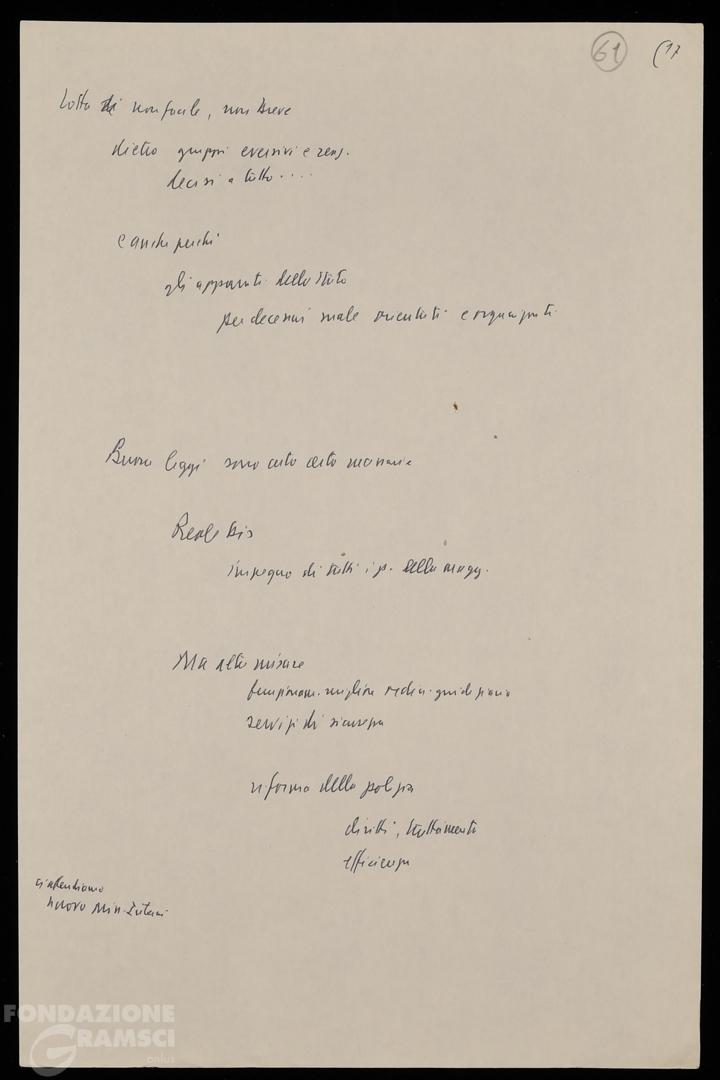 61 (17
Lotta non facile, non breve
dietro gruppi eversivi e reaz.
decisi a tutto....
e anche perché
gli apparati dello Stato
per decenni male orientati e organizzati
Buone leggi sono certo certo necessarie
Reale bis
impegno di tutti i p. della magg.
Ma altre misure
funzionam. migliore giudiziario
servizi di sicurezza
riforma della polizia
diritti, trattamento
efficienza
ci attendiamo
nuovo Min. Interni
FONDAZIONE
GRAMSCI
onlus